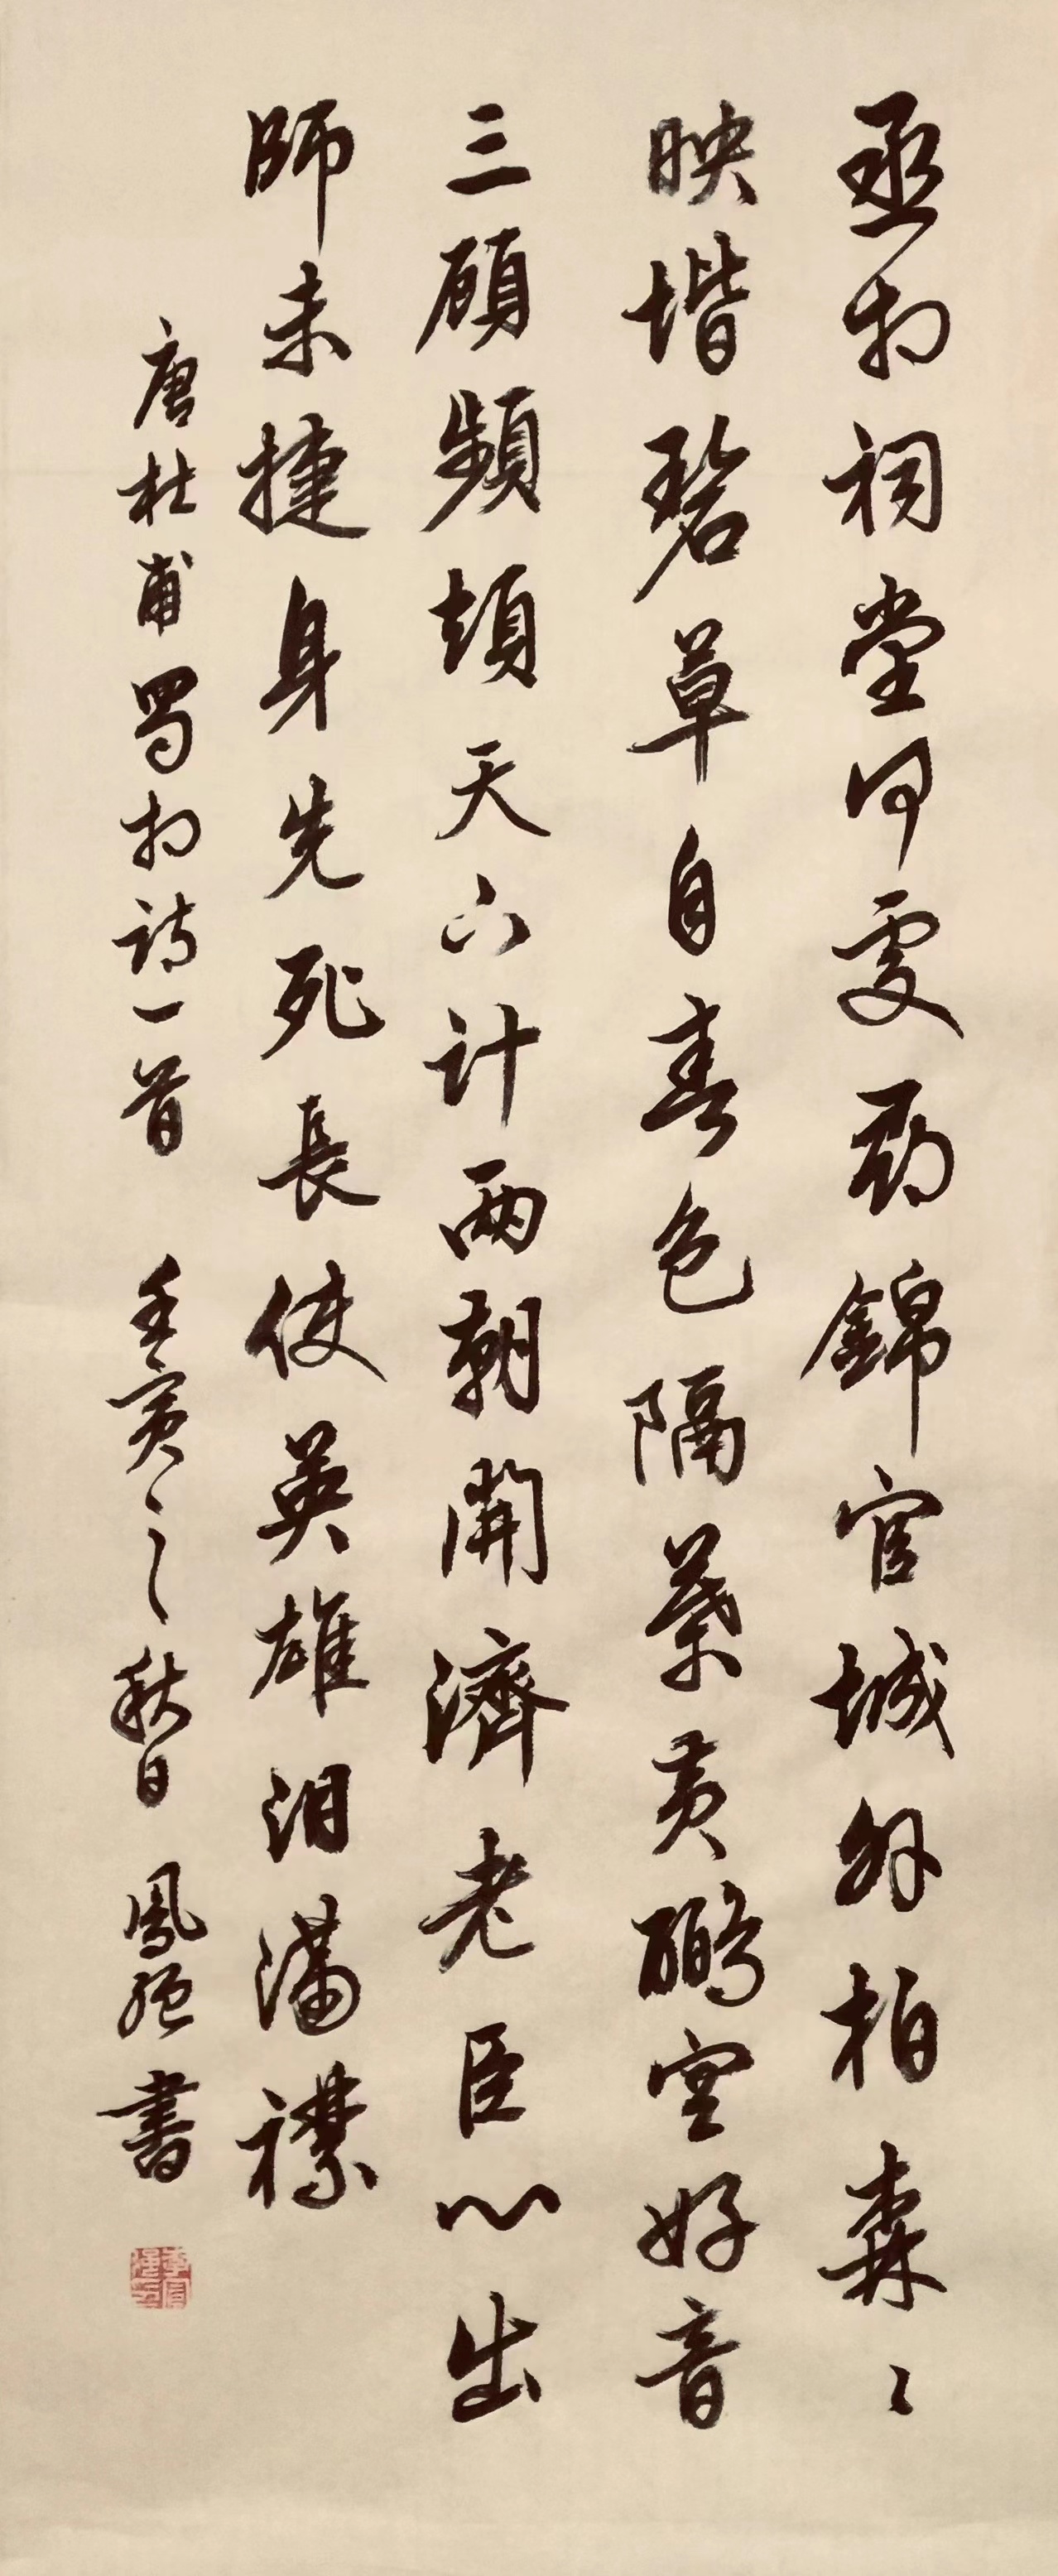 丞相祠堂何處尋錦官城外柏森々
映堦碧草自春色隔葉黄鸝空好音
三顧頻煩天下計兩朝開濟老臣心出
師未捷身先死長使英雄泪滿襟
唐杜甫蜀相詩一首 壬寅之秋日 鳳書